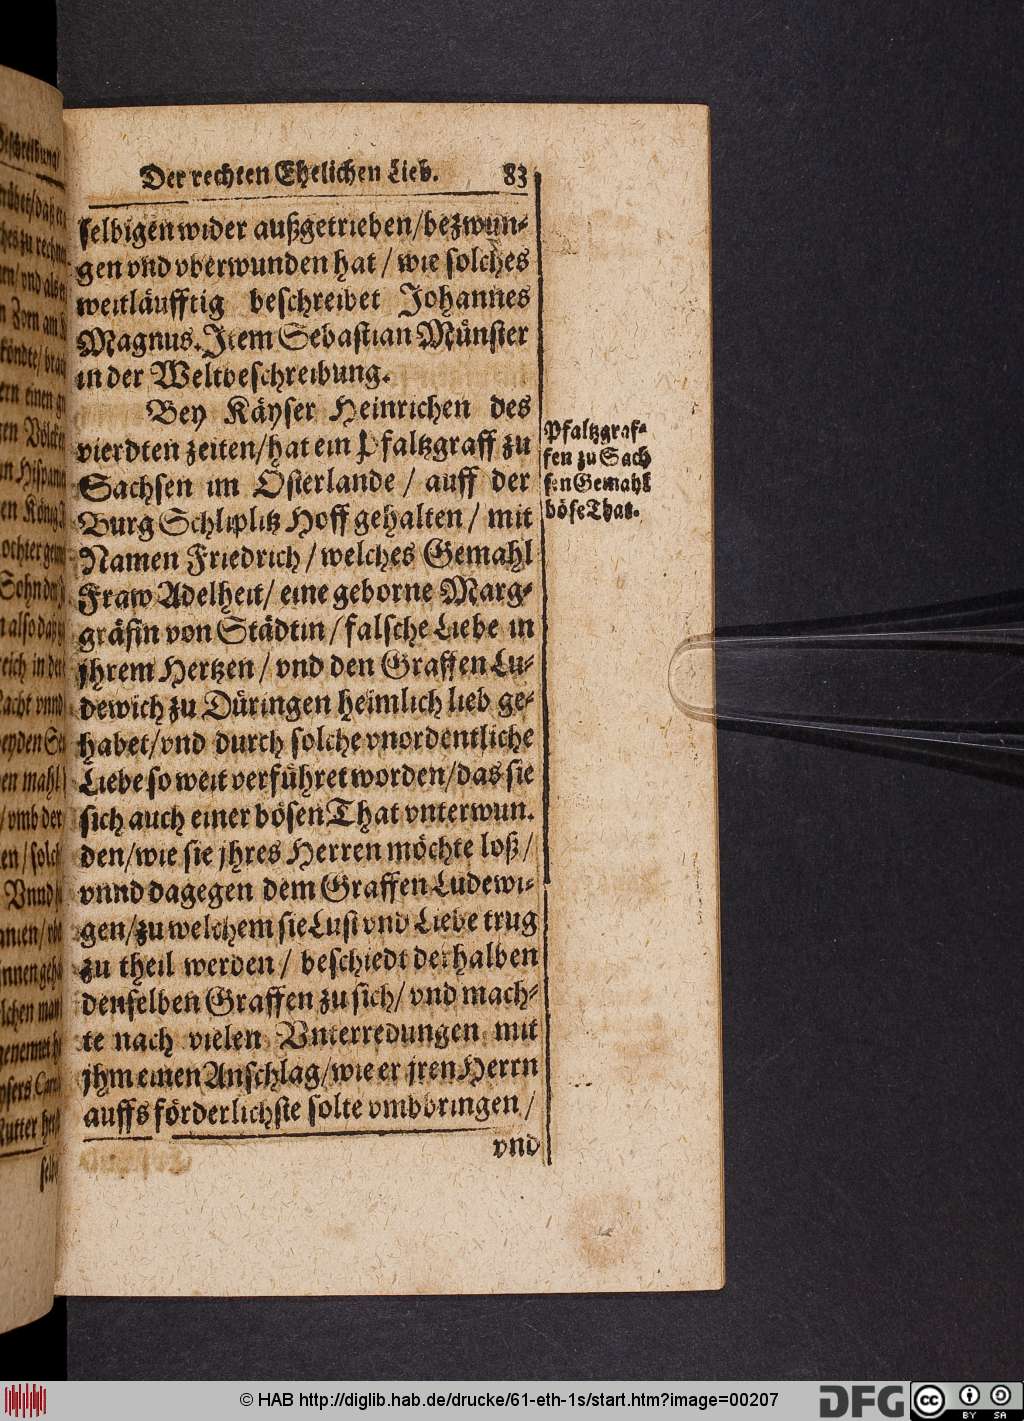 Der rechten Ehelichen Lieb. 83
selbigen wider außgetrieben/bezwun-
gen vnd vberwunden hat / wie solches
weitläufftig beschreibet Johannes
Magnus. Item Sebastian Münster
in der Weltbeschreibung.
Bey Käyser Heinrichen des
vierdten zeiten/hat ein Pfaltzgraff zu
Sachsen im Osterlande / auff der
Burg Schliplitz Hoff gehalten / mit
Namen Friedrich / welches Gemahl
Fraw Adelheit/ eine geborne Marg-
gräfin von Städtin / falsche Liebe in
jhrem Hertzen / vnd den Graffen Lu-
dewich zu Düringen heimlich lieb ge-
habet/vnd durch solche vnordentliche
Liebe so weit verführet worden/das sie
sich auch einer bösen That vnterwun.
den/wie sie jhres Herren möchte loß /
vnnd dagegen dem Graffen Ludewi-
gen/zu welchem sie Lust vnd Liebe trug
zu theil werden / beschiedt derhalben
denselben Graffen zu sich/ vnd mach-
te nach vielen Vnterredungen mit
jhm einen Anschlag/wie er jren Herrn
auffs förderlichste solte vmbbringen /
vnd
Pfaltzgraf-
fen zu Sach
sen Gemahl
böse That.
© HAB http://diglib.hab.de/drucke/61-eth-1s/start.htm?image=00207
DFG
cc BY SA